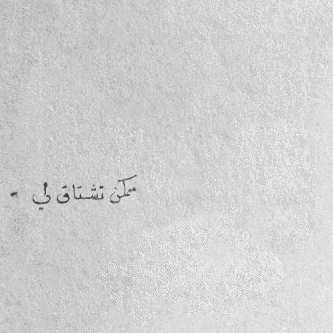 ممكن تشتاق لي